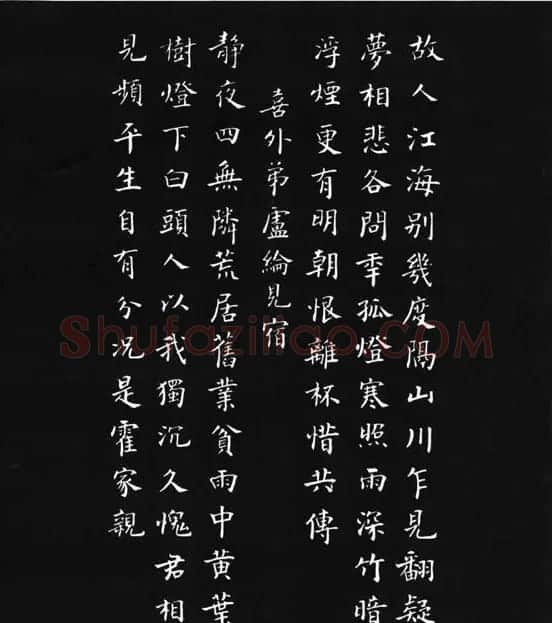 故人江海别幾度隔山川乍見翻疑
夢相悲各問季孤燈寒照雨深竹暗
浮煙更有明朝恨離杯惜共傳
喜外弟盧綸見宿
静夜四無隣荒居舊業貧雨中黄葉
樹燈下白頭人以我獨沉久愧君相
見頻平生自有分況是霍家親
Shufaziliao.COM